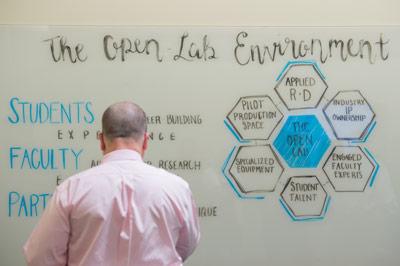 The Open-Lab Environment
STUDENTS
CAREER BUILDING
EXPERIENCE
FACULTY
RESEARCH
APPLIED
R·D
PILOT
PRODUCTION
SPACE
INDUSTRY
IP
OWNERSHIP
THE
OPEN
LAB
SPECIALIZED
EQUIPMENT
ENGAGED
FACULTY
EXPERTS
STUDENT
TALENT